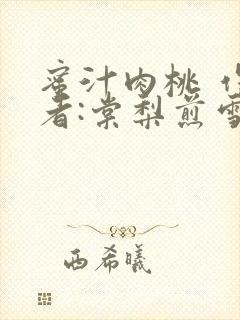 蜜汁肉桃 作
者:棠梨煎雪
西希曦